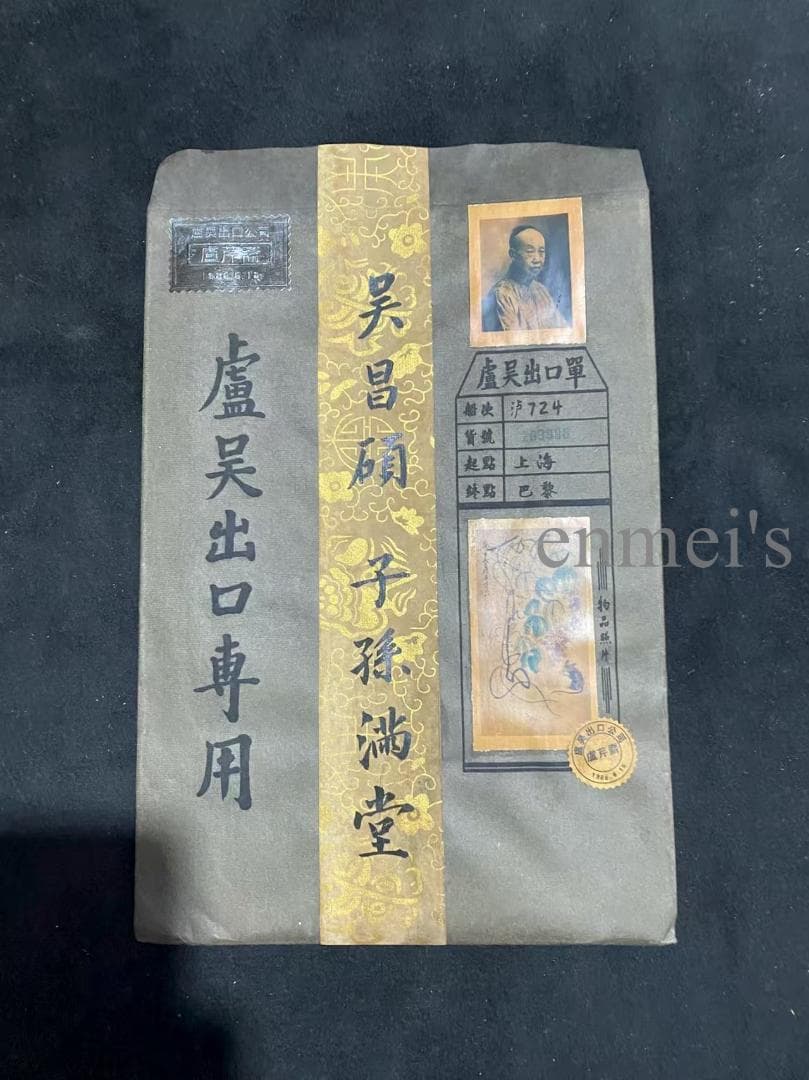 盧吴出口公司
卢芹齋
盧吴出口專用
吴昌碩 子孫滿堂
盧吴出口單
船次 沪724
貨號
起點 上海
終點 巴黎
物品照片
盧吴出口公司
盧芹齋
enmei's